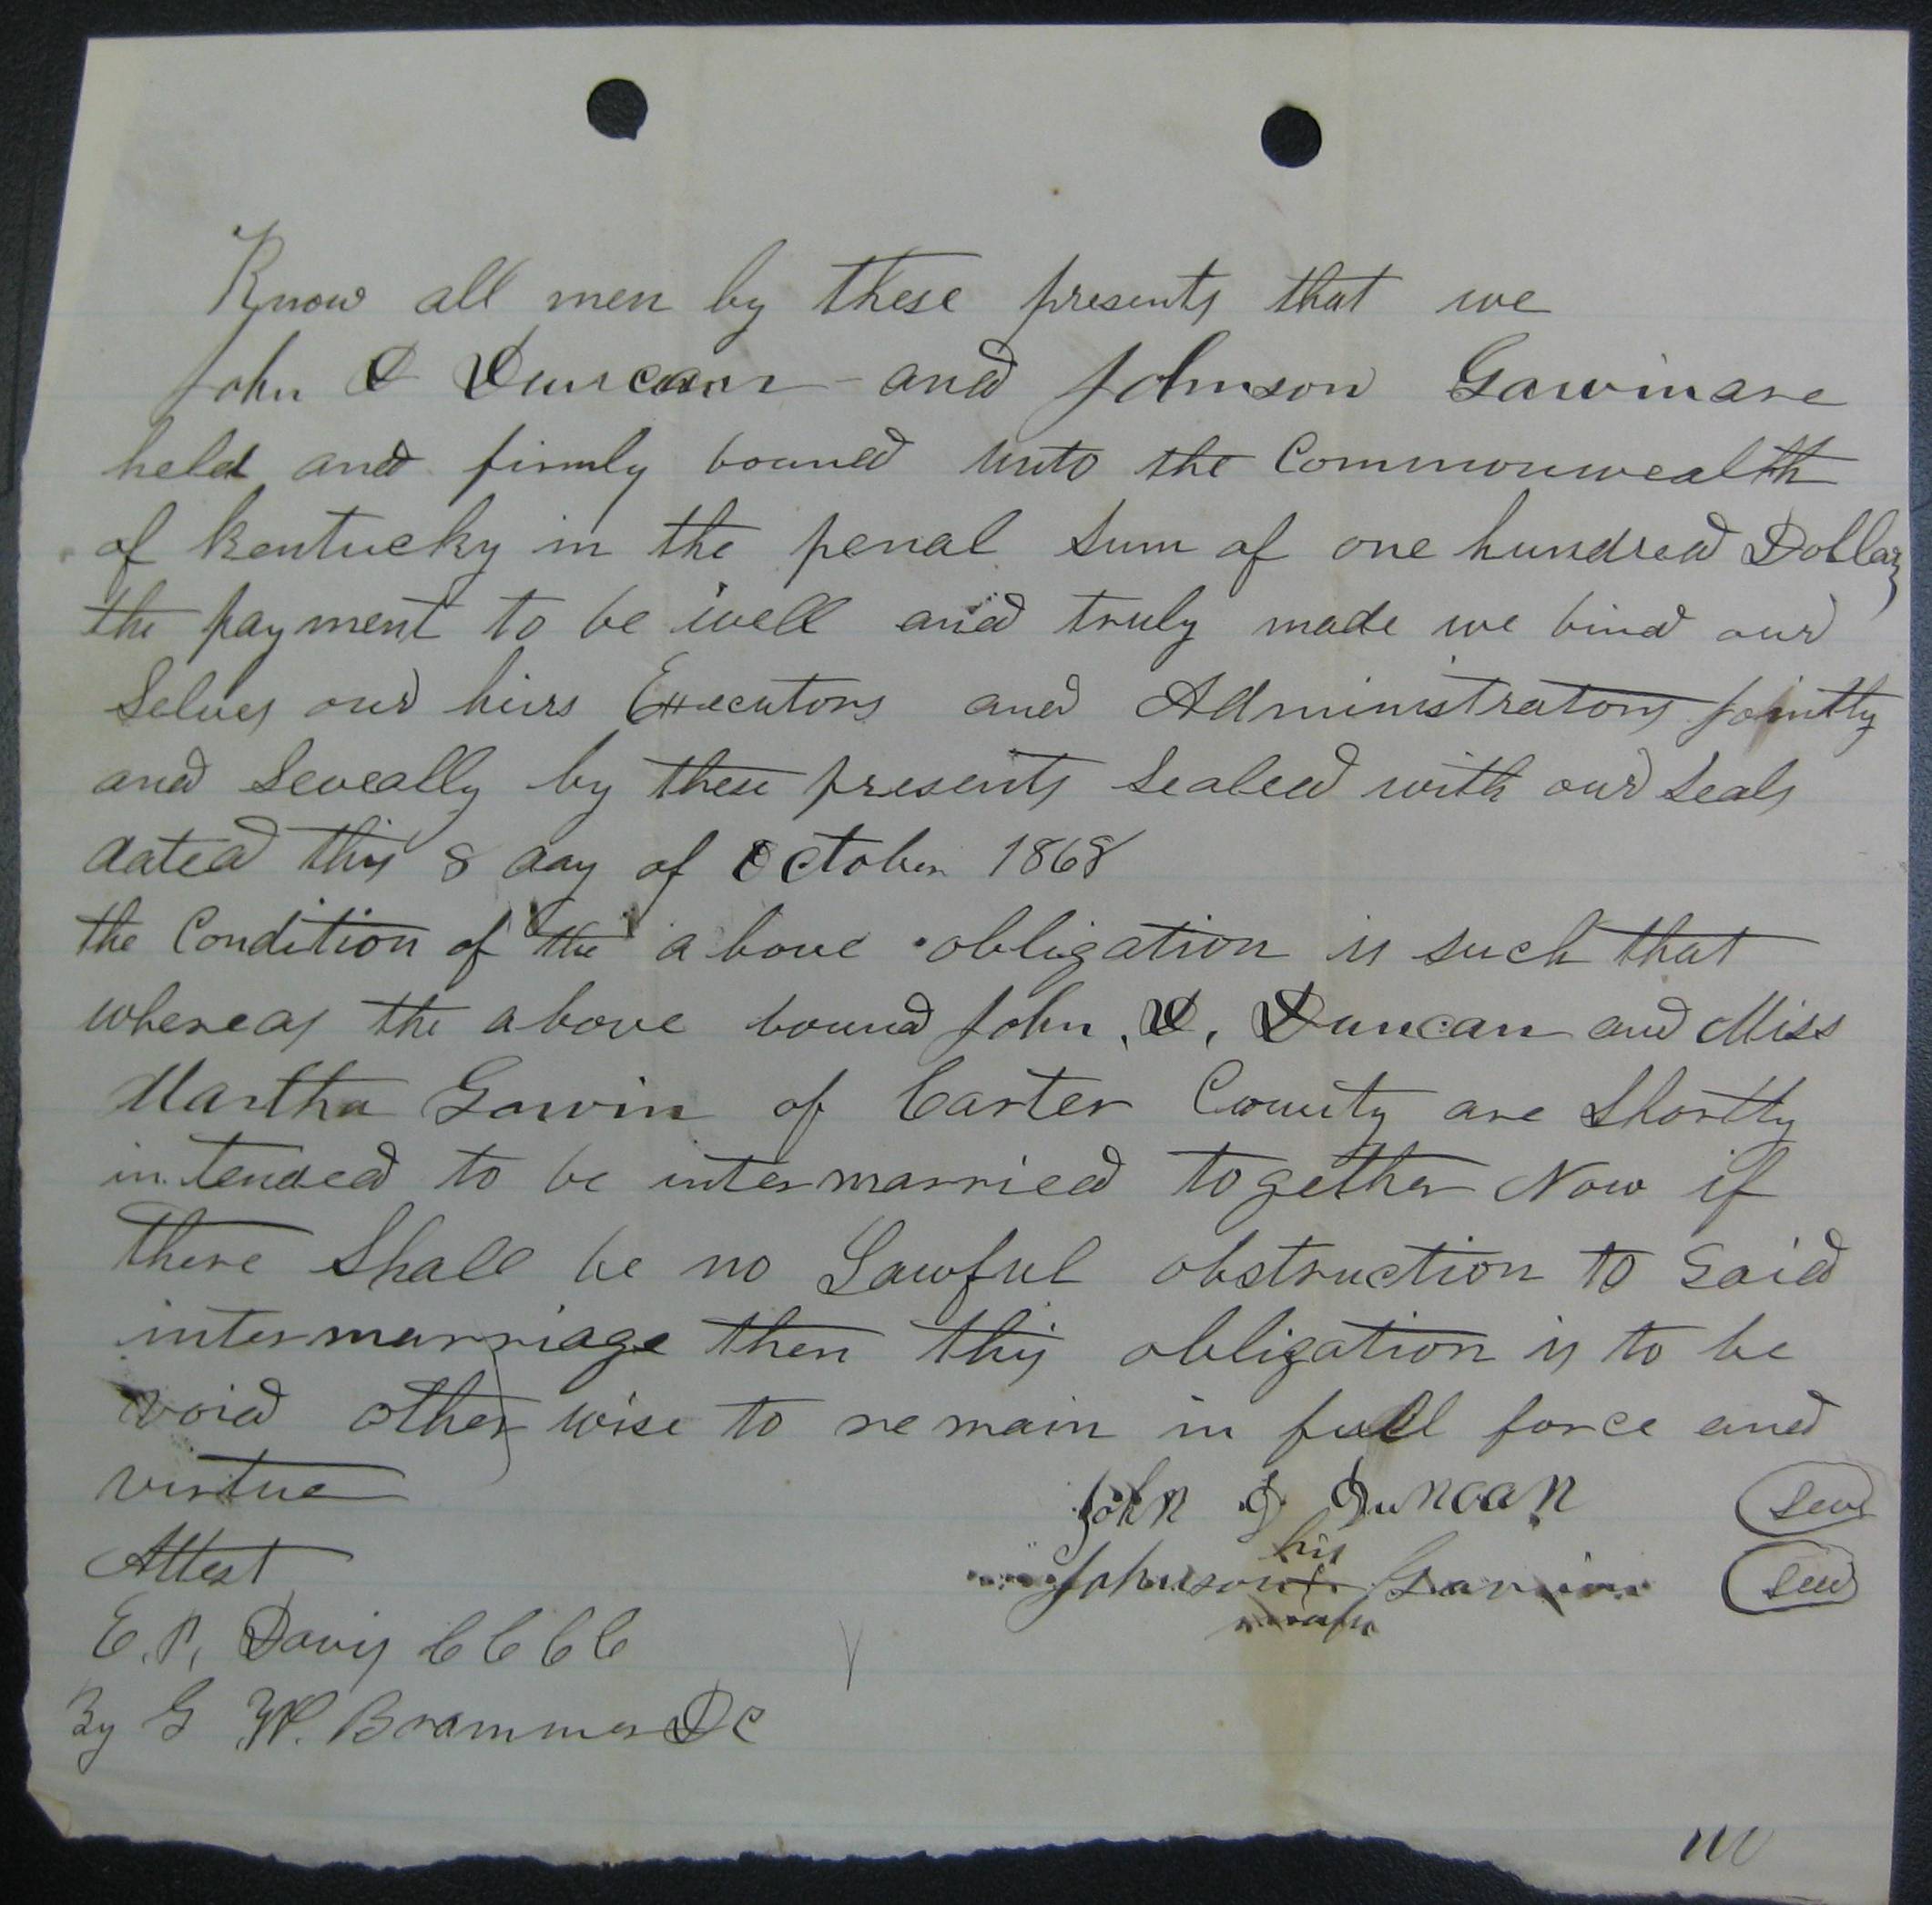 Know all men by these presents that we
John D Duncan and Johnson Gawin are
held and firmly bound unto the Commonwealth
of Kentucky in the penal Sum of one hundred Dollars
the payment to be well and truly made we bind our
Selves our hiers Executors and Administrators jointly
and Seveally by these presents Sealed with our Seals
dated this 8 day of October 1868
the Condition of the above obligation is such that
whereas the above bound John. D. Duncan and Miss
Martha Gawin of Carter County are Shortly
intended to be intermarried together Now if
there Shall be no Lawful obstruction to Said
intermarriage then this obligation is to be
void other wise to remain in full force and
virtue
John D Duncan Seal
his
Johnson + Gawin Seal
mark
Attest
E. P. Davis CCCC
By G W. Brammer DC